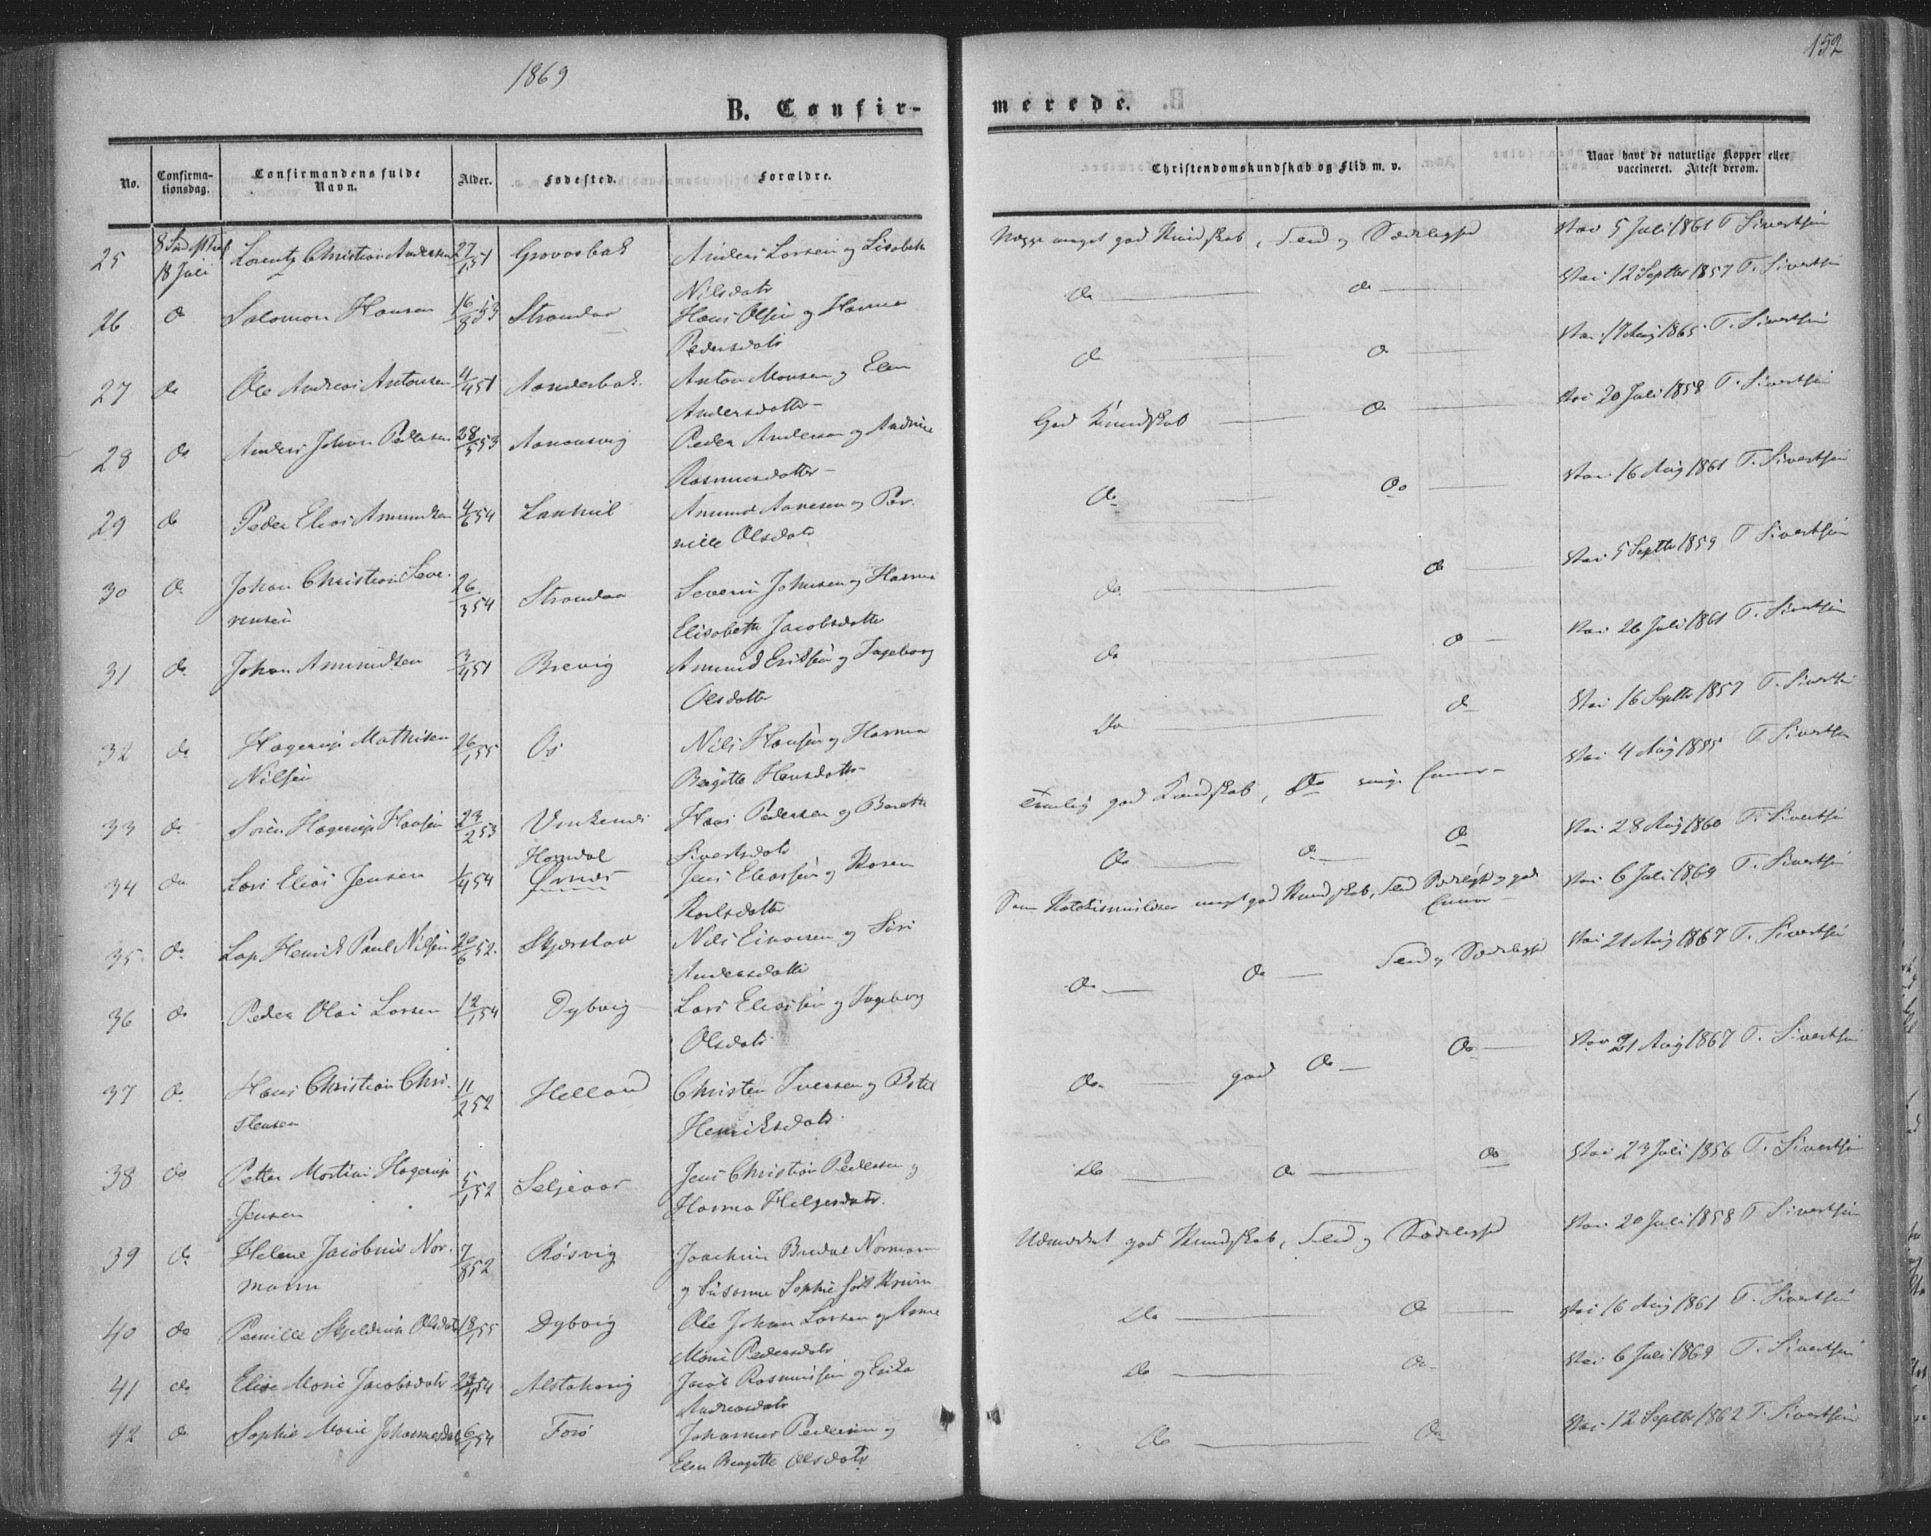 152
1869
B. Confirmerede.
No. Confirmationsdag. Confirmandens fulde Navn. Alder. Fødested. Forældre. Christendomskundskab og Flid m. v. Naar havt de naturlige Kopper eller vaccineret. Attest derom.
25 18 Juli Lorentz Christian Andersen 27/1 51 Anders Larsen og Lisabeth Nilsdatr meget god Kundskab, Flid og Sædelighed Vac 5 Juli 1861 T. Sivertsen
26 do Salomon Hansen 16/8 53 Strandaa Hans Olsen og Hanna Pedersdatr do do Vac 12 Septbr 1857 T. Sivertsen
27 do Ole Andreas Antonsen 4/4 51 Anton Monsen og Elen Andersdatter do do Vac 17 Aug 1865 T. Sivertsen
28 do Anders Johan Pedersen 28/5 53 Peder Andersen og Andrine Rasmusdatter God Kundskab do Vac 20 Juli 1858 T. Sivertsen
29 do Peder Elias Amundsen 4/6 54 Amund Aanesen og Pernille Olsdatr do do Vac 16 Aug 1861 T. Sivertsen
30 do Johan Christian Severinsen 26/3 54 Strandaa Severin Johnsen og Hanna Elisabeth Jacobsdatter do do Vac 5 Septbr 1859 T. Sivertsen
31 do Johan Amundsen 3/4 51 Brevig Amund Eriksen og Ingeborg Olsdatter do do Vac 26 Juli 1861 T. Sivertsen
32 do Hagerup Mathisen Nilsen 26/1 55 Os Nils Hansen og Hanna Birgitte Hansdatter do do Vac 16 Septbr 1857 T. Sivertsen
33 do Sören Hagerup Hansen 23/2 53 Hans Pedersen og Bereth Sivertsdatr Temlig god Kundskab, do Vac 4 Aug 1855 T. Sivertsen
34 do Lars Elias Jensen 1/4 54 Jens Eliassen og Karen Karlsdatter do do do Vac 28 Aug 1860 T. Sivertsen
35 do Lap Henrik Paul Nilsen 20/6 52 Skjerstad Nils Einarsen og Siri Andersdatter meget god Kundskab, Flid Vac 6 Juli 1869 T. Sivertsen
36 do Peder Olai Larsen 12/1 54 Dybvig Lars Eliassen og Ingeborg Olsdatr do do Flid og Sædelighed Vac 21 Aug 1867 T. Sivertsen
37 do Hans Christian Christensen 11/2 52 Helland Christen Iversen og Henriksdatr do god do do Vac 21 Aug 1867 T. Sivertsen
38 do Petter Martin Hagerup Jensen 5/1 52 Seljeaas Jens Christian Pedersen og Hanna Helgesdatr do do do Vac 23 Juli 1856 T. Sivertsen
39 do Helene Jacobine Normann 7/8 52 Røsvig Joachim Bredal Normann og Susanne Sophie født Krum Udmærket god Kundskab, Flid og Sædelighed Vac 20 Juli 1858 T. Sivertsen
40 do Pernille Skjeldrup Olsdatr 18/1 55 Dybvig Ole Johan Larsen og Anne Marie Pedersdatr do do Vac 16 Aug 1861 T. Sivertsen
41 do Elise Marie Jacobsdatr Alstahoug Jacob Rasmussen og Erika Andreasdatr do do Vac 6 Juli 1869 T. Sivertsen
42 do Sophie Marie Johannesdatr 6/1 54 Johannes Pedersen og Elen Birgitte Olsdatr do do Vac 12 Septbr 1862 T. Sivertsen